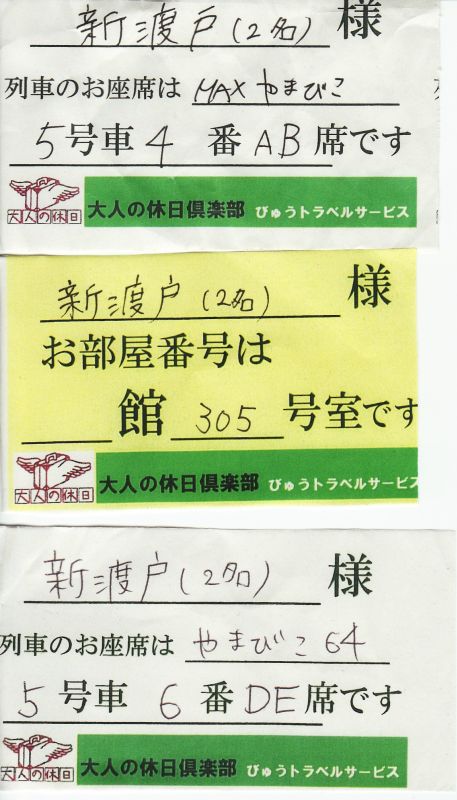 新渡戸(2名) 様
列車のお座席は MAXやまびこ
5号車 4 番 AB 席です
大人の休日 大人の休日倶楽部 びゅうトラベルサービス
新渡戸(2名) 様
お部屋番号は
館 305 号室です
大人の休日 大人の休日倶楽部 びゅうトラベルサービス
新渡戸(2名) 様
列車のお座席は やまびこ 64
5 号車 6 番 DE席です
大人の休日 大人の休日倶楽部 びゅうトラベルサービス